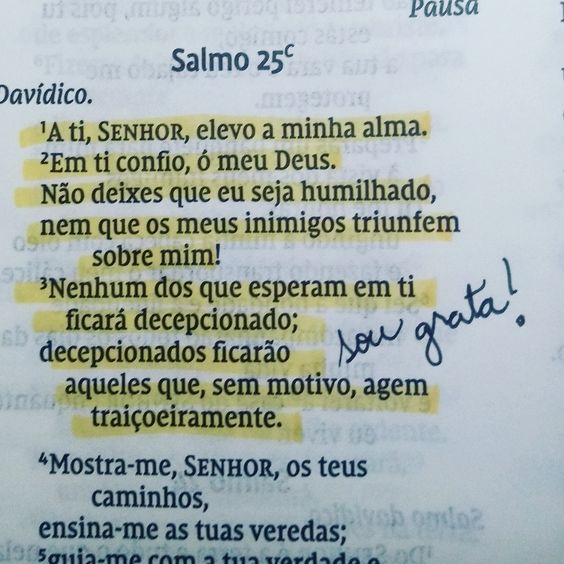 Pausa
Salmo 25ᶜ
Davídico.
¹A ti, SENHOR, elevo a minha alma.
²Em ti confio, ó meu Deus.
Não deixes que eu seja humilhado,
nem que os meus inimigos triunfem
sobre mim!
³Nenhum dos que esperam em ti
ficará decepcionado;
decepcionados ficarão
aqueles que, sem motivo, agem
traiçoeiramente.
sou grata!
⁴Mostra-me, SENHOR, os teus
caminhos,
ensina-me as tuas veredas;
⁵guia-me com a tua verdade e